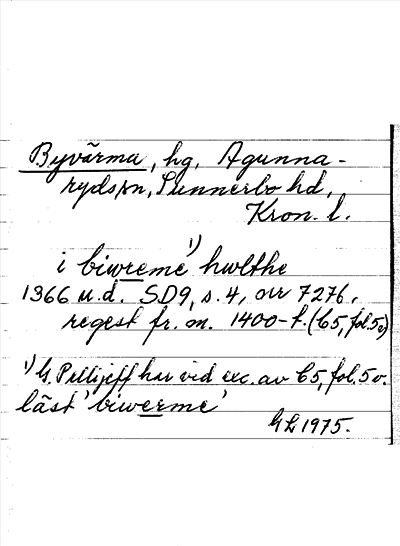 Byvärma, hg, Agunna-
rydssn, Sunnerbo hd,
Kron. l.
i biwreme¹⁾ hwlthe
1366 u.d. SD9, s. 4, nr 7276,
regest fr. m. 1400-t. (C5, fol. 5v)
¹⁾ G. Pellijeff har vid exc. av C5, fol. 5 v.
läst 'biwerme'
GL 1975.